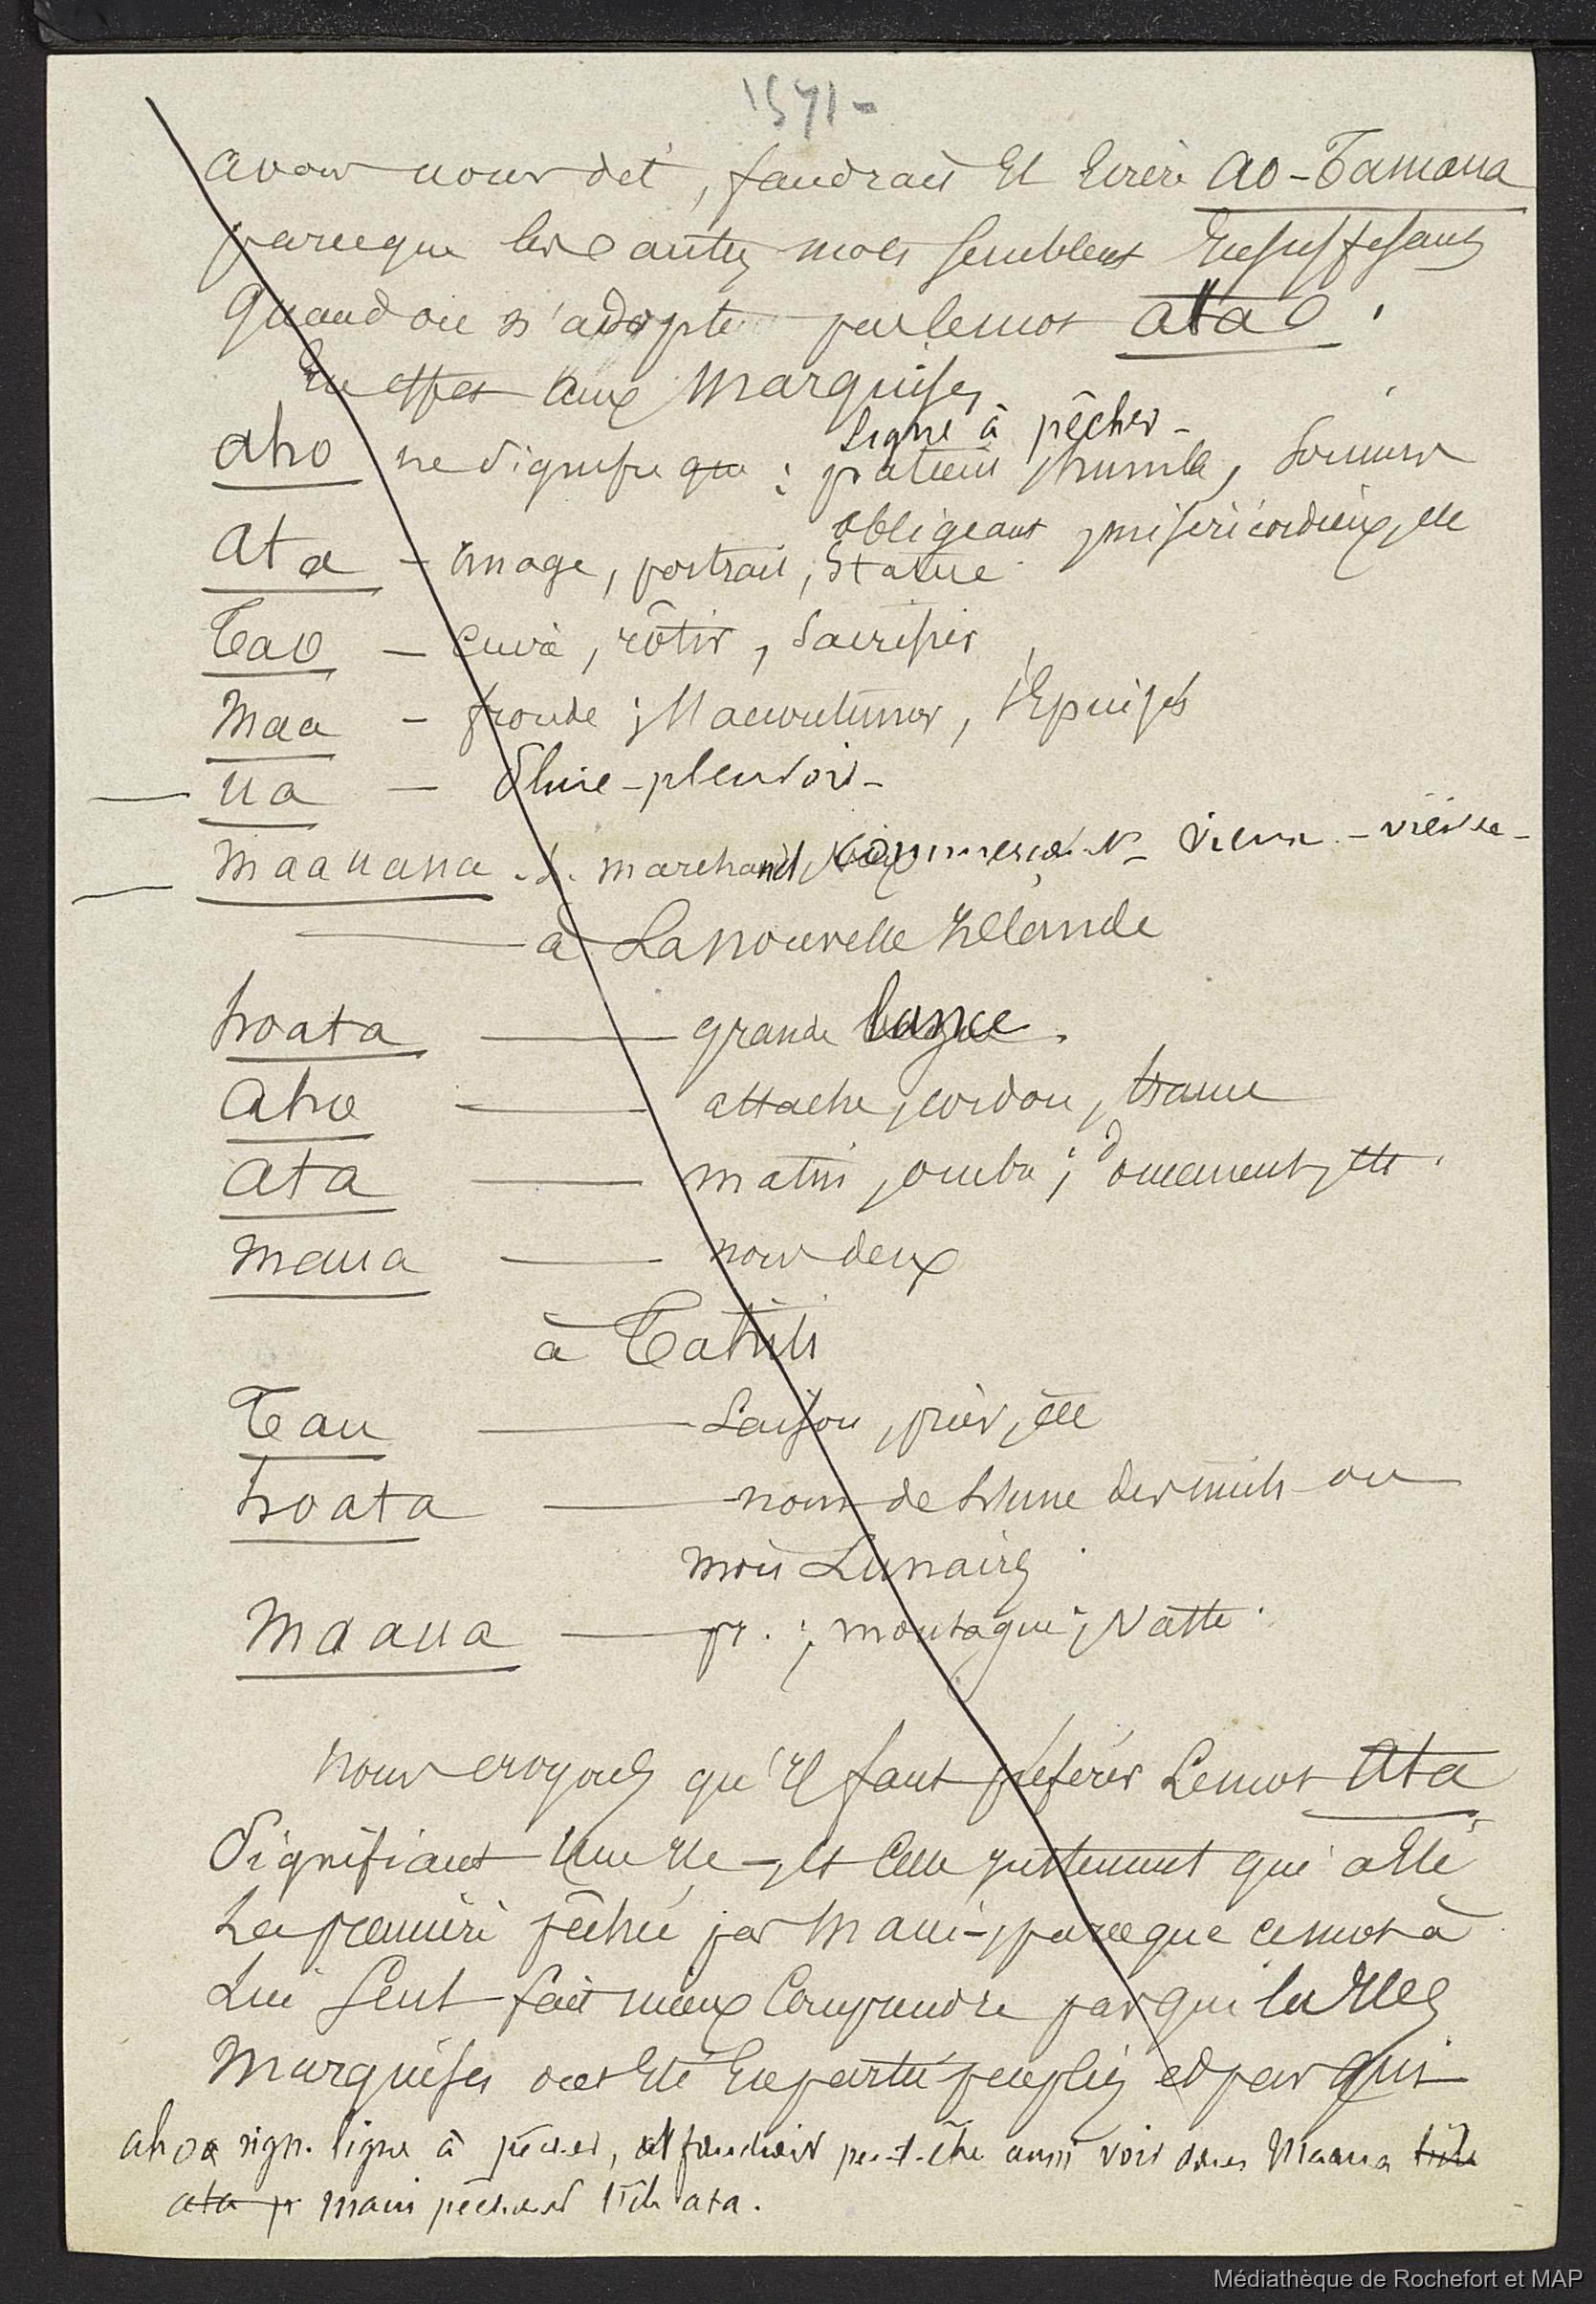 1571-
avons nous dit, faudrait il Ecrire ao-Tamana
parceque les autres mots semblent Insuffisants
Quand on n'adopte pas le mot ata o.
En effet aux Marquises
ligne à pêcher -
aho ne signifie que : patient, humble, soumis
obligeant, miséricordieux, etc
ata - Image, portrait, Statue
Tao - Cuire, rôtir, Sacrifier
Maa - fronde ; S'accoutumer, Epuisé
ua - Pluie - pleuvoir -
maauana . s. marchand, commerce. vieux - vieille -
à La nouvelle Zélande
hoata - grande lance.
Aho - attache, cordon, trame
ata - matin, ombre ; doucement, etc.
maua - nous deux
à Tahiti
Tau - Saison, prier, etc
hoata - nom de l'une des nuits ou
mois Lunaires
Maaua - montagne, Natte.
nous croyons qu'Il faut préférer Le mot Ata
Signifiant Une Ile -, et Celle justement qui a Eté
La première pêchée par Maui -, parceque ce mot à
Lui Seul fait mieux Comprendre par qui les Iles
Marquises ont Eté En partie peuplées et par qui
aho sign. ligne à pêcher, il faudrait peut-être aussi voir dans Maaua
ata maui pêchant ata.